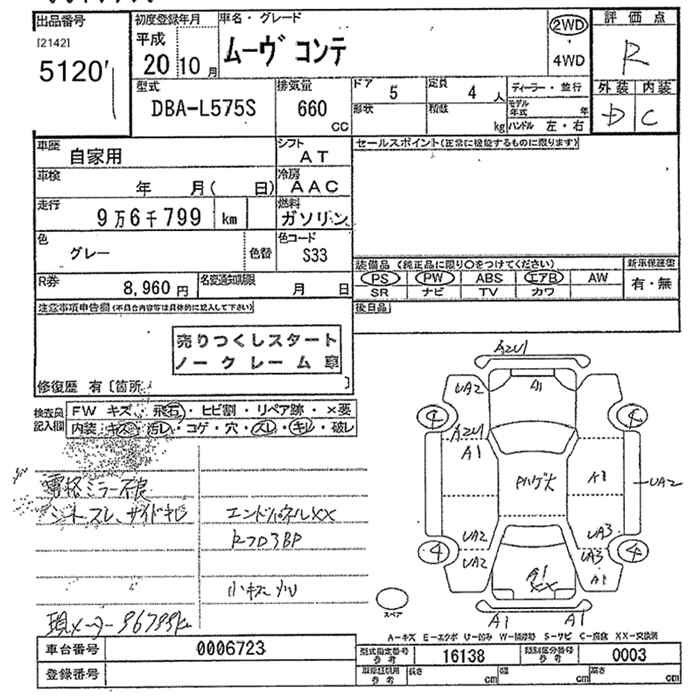 出品番号 初度登録年月 車名・グレード 2WD 評価点
[2142] 平成 ムーヴ コンテ R
5120 20 10月 4WD 外装 内装
D C
型式 排気量 ドア 5 定員 4人 ディーラー・並行
DBA-L575S 660 cc 形状 積載 kg モデル年式 年
ハンドル 左・右
車歴 自家用 シフト AT セールスポイント(正常に機能するものに限ります)
車検 年 月( 日) 冷房 AAC
走行 9万6千799 km 燃料 ガソリン
色 グレー 色替 色コード S33
装備品 (純正品に限り○をつけてください) 新車保証書
PS PW ABS エアB AW 有・無
SR ナビ TV カワ
R券 8,960円 名変通知期限 月 日 後日品
注意事項申告欄(不具合内容等は具体的に記入して下さい)
売りつくしスタート
ノークレーム 車
修復歴 有〔箇所 〕
検査員記入欄 FW キズ・飛石・ヒビ割・リペア跡・×要
内装・キズ・汚レ・コゲ・穴・スレ・キレ・破レ
電格ミラー不良
シートスレ、サイドキレ
エンドパネルXX
小キズ
現メーター96799km
AZU1
UA2 A1
4 4
AZU1
A1 Pハゲ大 UA2
UA2 UA3
UA2 UA3
4 A1 4
XX A1
スペア A1 A1
A-キズ E-エクボ U-凹み W-補修跡 S-サビ C-腐食 XX-交換済
車台番号 0006723 型式指定番号 参考 16138 類別区分番号 参考 0003
登録番号 長さ cm 幅 cm 高さ cm